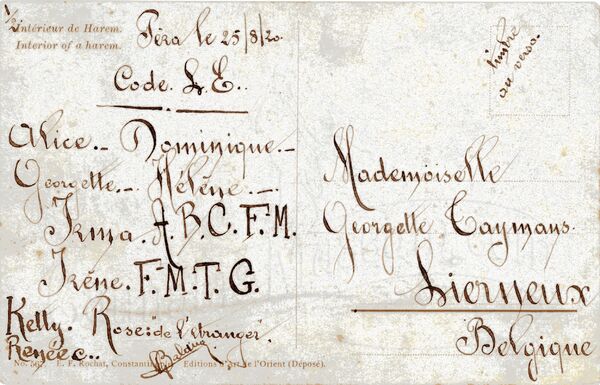 1/2
Intérieur de Harem.
Interior of a harem.
Péra le 25/8/20.
timbre
au verso.
Code. L. E..
Alice.- Dominique.-
Georgette.- Hélène.-
Irma. A. B. C. F. M.
Irène. F. M. T. G.
Kelly. Rose: de l'étranger.
Renée C..
No. E. F. Rochat, Constantin Editions d'Art de l'Orient (Déposé).
Mademoiselle
Georgette Taymans.
Lierneux
Belgique